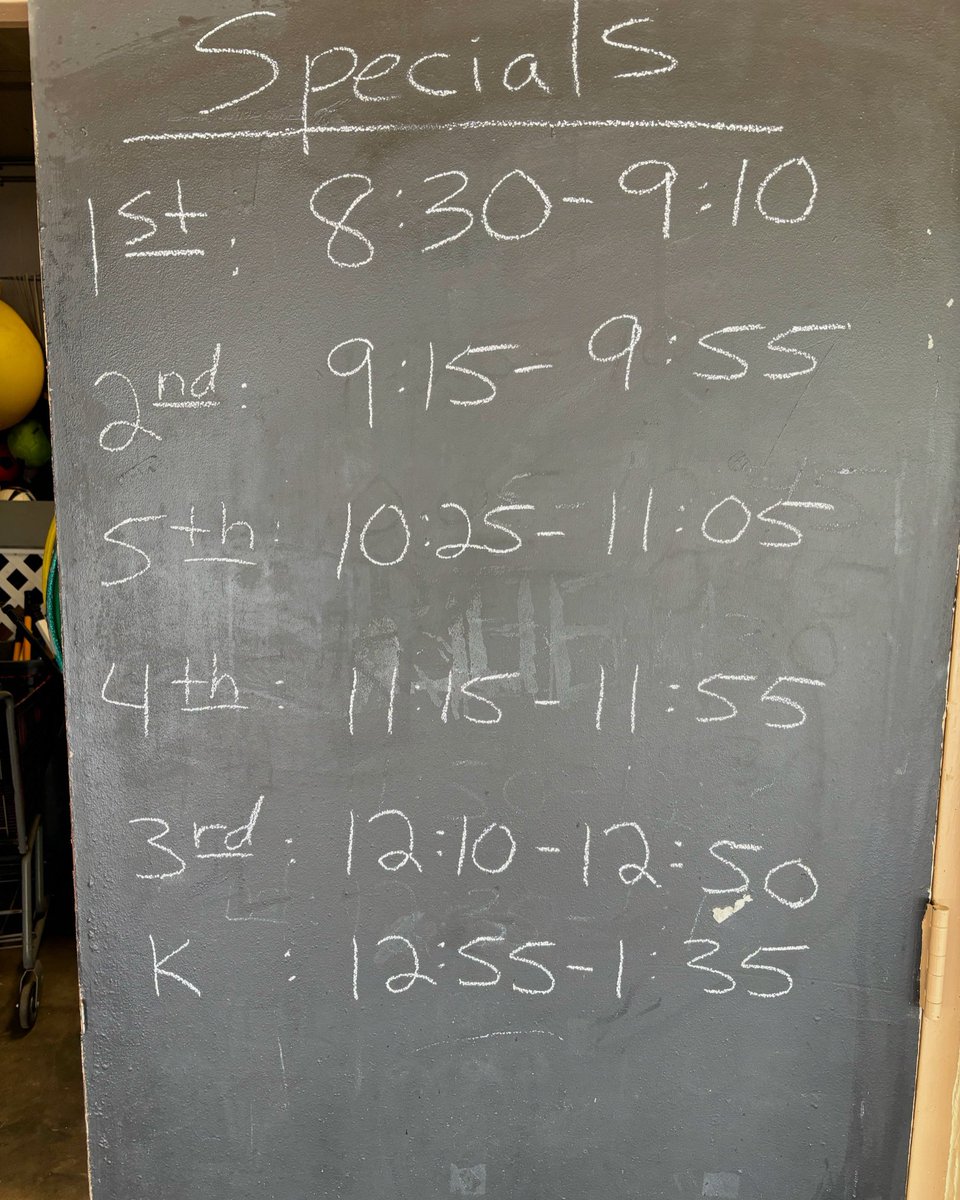 Specials
1st: 8:30-9:10
2nd: 9:15-9:55
5th: 10:25-11:05
4th: 11:15-11:55
3rd: 12:10-12:50
K: 12:55-1:35